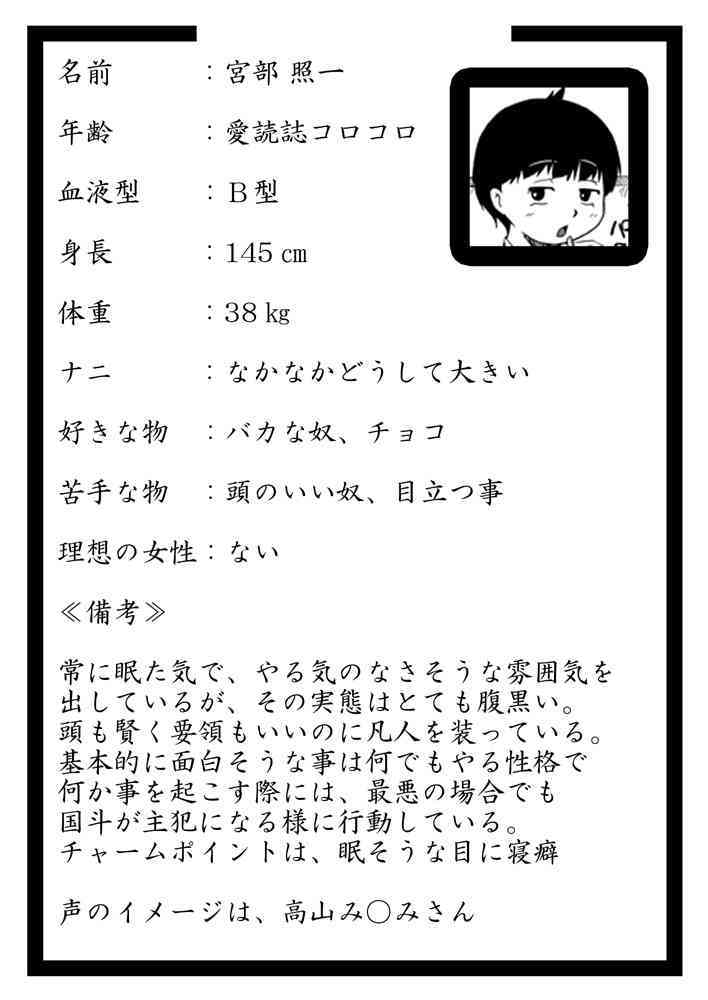 名前　　　：宮部 照一
年齢　　　：愛読誌コロコロ
血液型　　：Ｂ型
身長　　　：145㎝
体重　　　：38㎏
ナニ　　　：なかなかどうして大きい
好きな物　：バカな奴、チョコ
苦手な物　：頭のいい奴、目立つ事
理想の女性：ない
≪備考≫
常に眠た気で、やる気のなさそうな雰囲気を
出しているが、その実態はとても腹黒い。
頭も賢く要領もいいのに凡人を装っている。
基本的に面白そうな事は何でもやる性格で
何か事を起こす際には、最悪の場合でも
国斗が主犯になる様に行動している。
チャームポイントは、眠そうな目に寝癖
声のイメージは、高山み○みさん